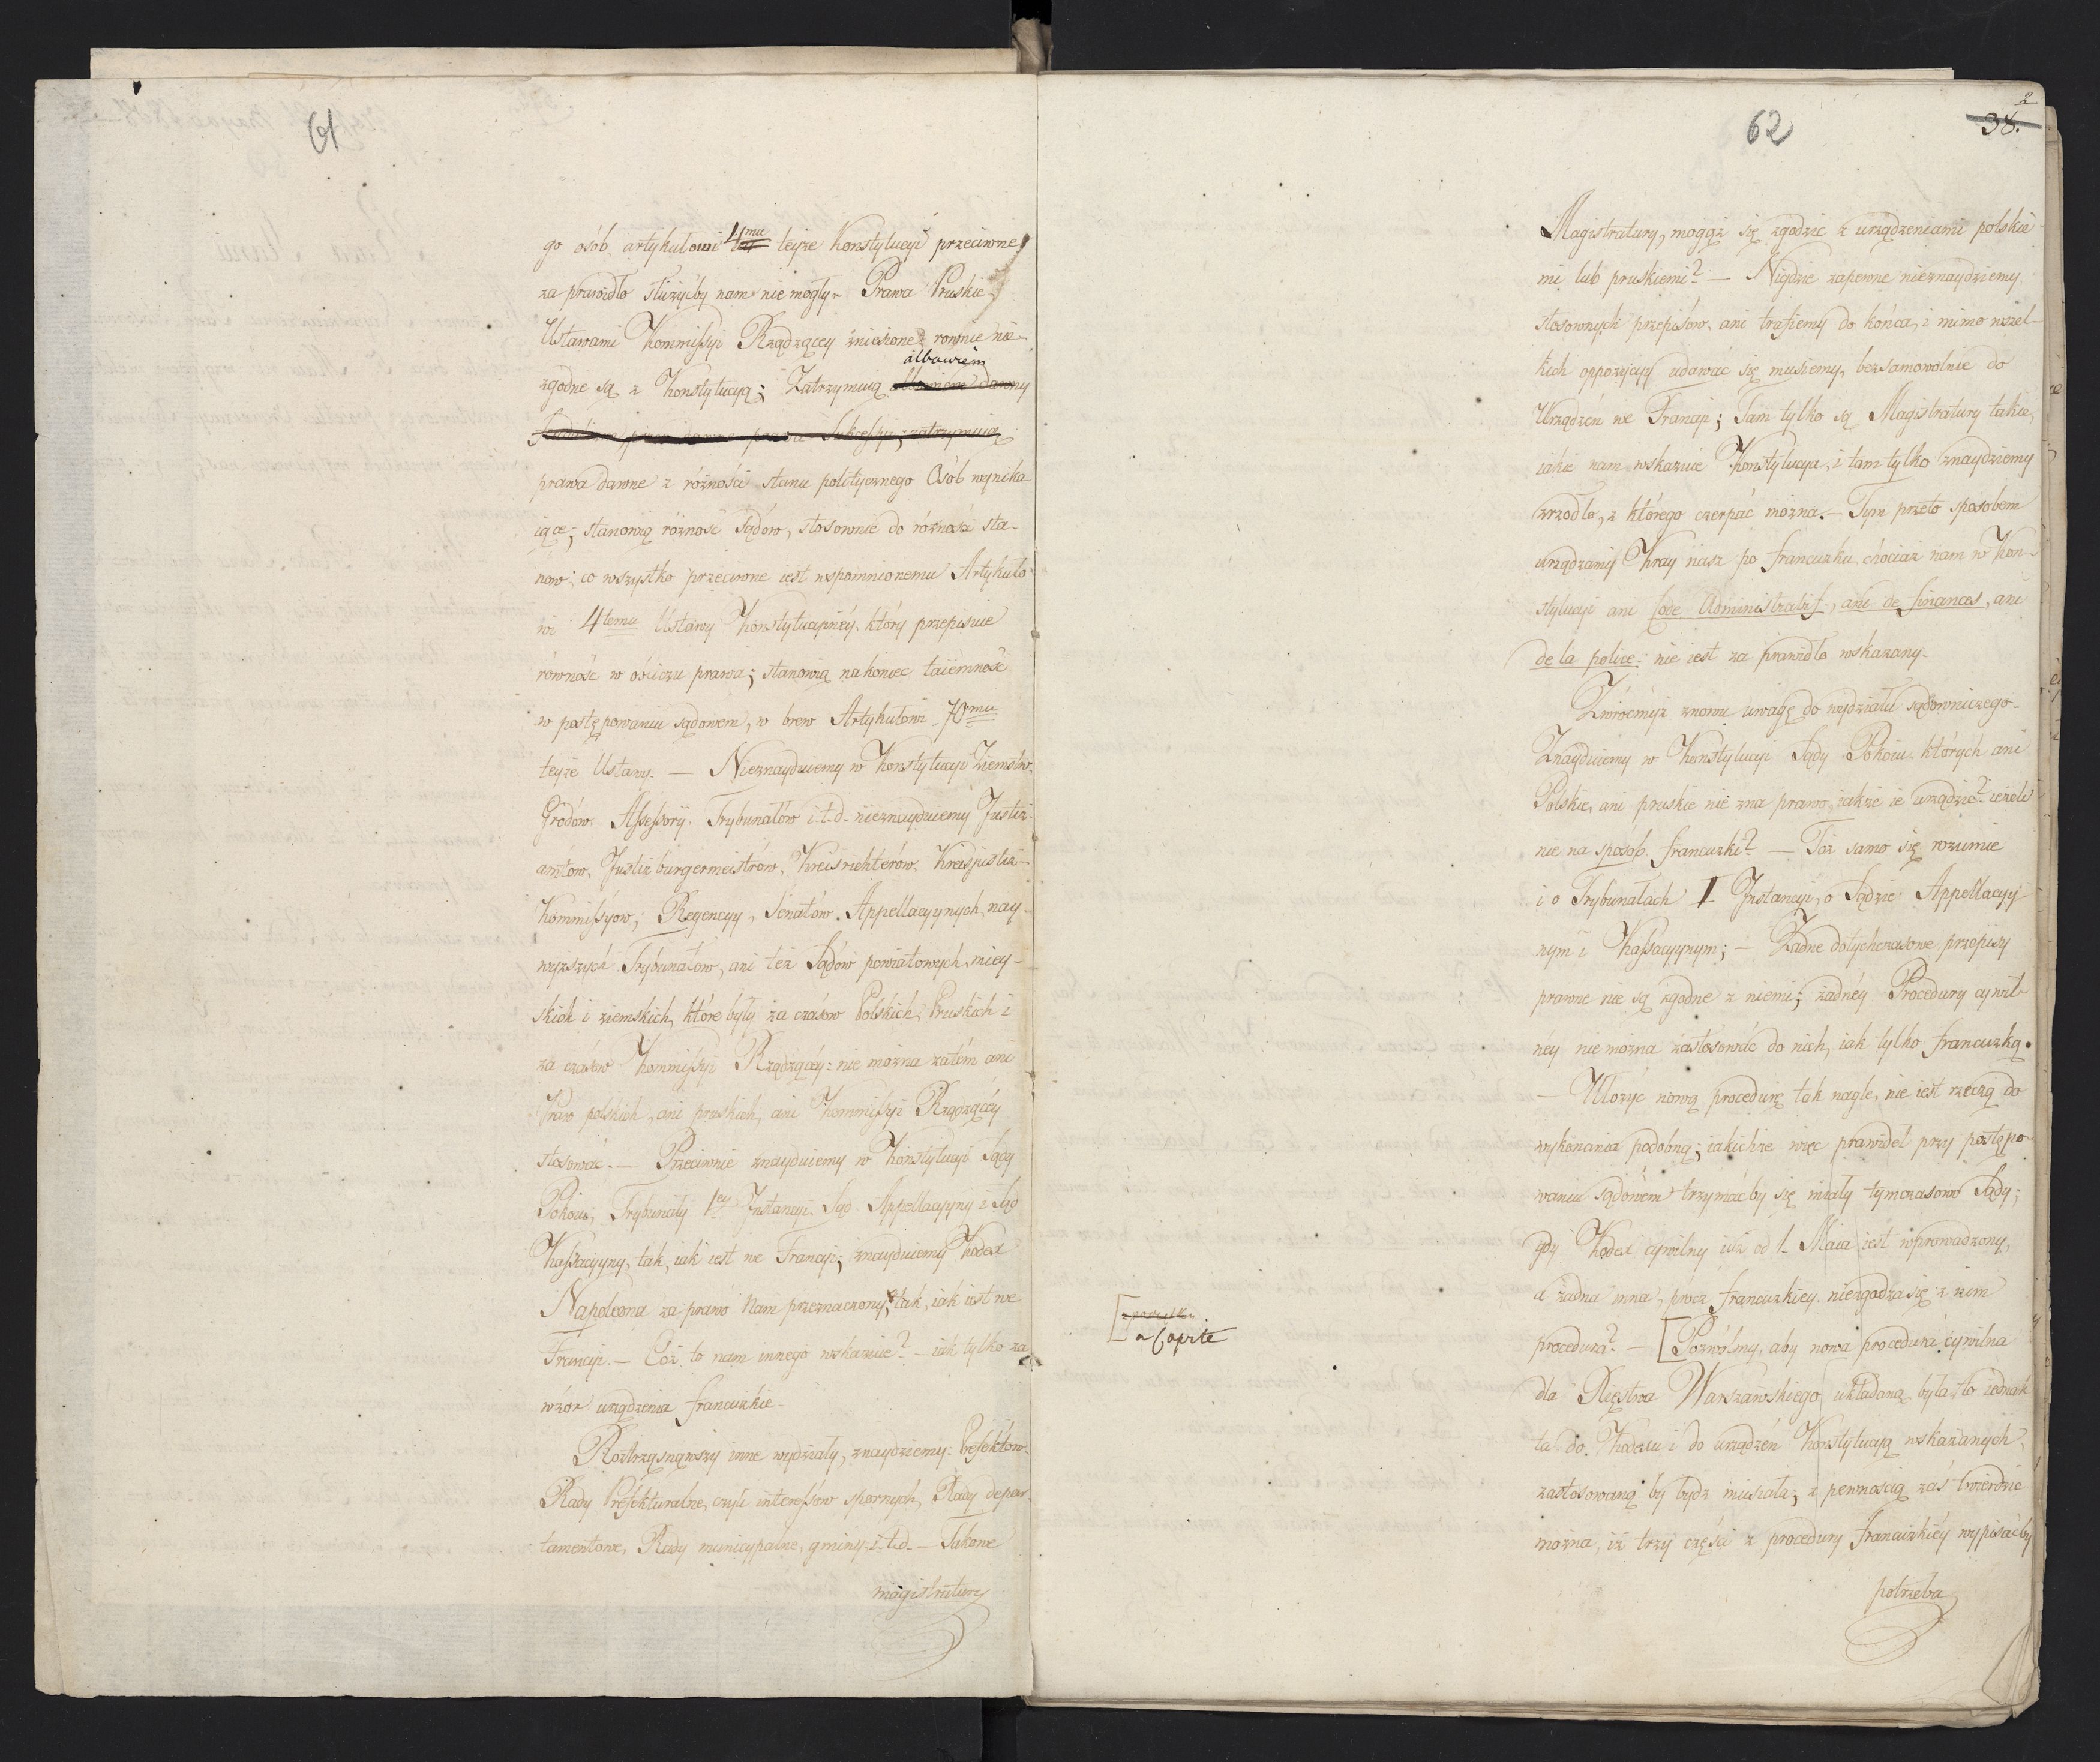 61
go osób artykułowi 4mu teyże Konstytucyi przeciwne,
za prawidło służyćby nam nie mogły. Prawa Pruskie,
Ustawami Kommissyi Rządzącey zniesione, rownie nie-
albowiem
zgodne są z Konstytucyą; Zatrzymuią albowiem dawny
prawa dawne z różności stanu politycznego Osób wynika-
iące; stanowią różność Sądów, stosownie do różności sta-
nów; co wszystko przeciwne iest wspomnionemu Artykuło-
wi 4temu Ustawy Konstytucyinéy, który przepisuie
równość w obliczu prawa; stanowią nakoniec taiemność
w postępowaniu sądowem, w brew Artykułowi 70mu
teyże Ustawy. — Nieznayduiemy w Konstytucyi Ziemstw.
Grodów. Assessoryi. Trybunałów i.t.d. nieznayduiemy Justiz-
amtów, Justizburgermeistrów, Kreisrichterów, Kreisjustiz-
Kommissyow, Regencyy, Senatów Appellacyynych, nay-
wyższych Trybunałów, ani też Sądów powiatowych, miey-
skich i ziemskich, które były za czasów Polskich, Pruskich i
za czasów Kommissyi Rządzącéy: nie można zatém ani
Praw polskich, ani pruskich, ani Kommissyi Rządzącéy
stosować. — Przeciwnie znayduiemy w Konstytucyi Sądy
Pokoiu, Trybunały 1ey Instancyi. Sąd Appellacyyny i Sąd
Kassacyyny, tak, iak iest we Francyi; znayduiemy Kodex
Napoleona za prawo Nam przeznaczony, tak, iak iest we
Francyi. — Cóż to nam innego wskazuie? — iak tylko za
wzór urządzenia francuzkie.
Roztrząsnąwszy inne wydziały, znaydziemy: Prefektów.
Rady Prefekturalne, czyli interessów spornych, Rady depar-
tamentowe, Rady municypalne, gminy i.t.d. — Takowe
magistratury
62
2
38.
Magistratury, mogąż się zgodzić z urządzeniami polskie
mi lub pruskiemi? — Nigdzie zapewne nieznaydziemy
stosownych przepisów, ani trafiemy do końca, i mimo wszel-
kich oppozycyy udawać się musiemy, bezsamowolnie do
Urządzeń we Francyi; Tam tylko są Magistratury takie,
iakie nam wskazuie Konstytucya, i tam tylko znaydziemy
zrzodło, z którego czerpać można. — Tym przeto sposobem
urządzamy Kray nasz po francuzku, chociaż nam w Kon-
stytucyi ani Code Administratif, ani de finances, ani
de la police: nie iest za prawidło wskazany.
Zwróćmyż znowu uwagę do wydziału sądowniczego.
Znayduiemy w Konstytucyi Sądy Pokoiu, których ani
Polskie, ani pruskie nie zna prawo, iakże ie urządzić? ieżeli
nie na sposób francuzki? — Toż samo się rozumie
i o Trybunałach I Instancyi, o Sądzie Appellacyy-
nym i Kassacyynym; — Żadne dotychczasowe przepisy
prawne nie są zgodne z niemi; żadnéy Procedury cywil-
ney nie można zastosować do nich, iak tylko francuzką.
— Ułożyć nową procedurę tak nagle, nie iest rzeczą do
wykonania podobną; iakichże więc prawideł przy postępo-
waniu sądowém trzymaćby się miały tymczasowe Sądy;
gdy Kodex cywilny iuż od 1. Maia iest wprowadzony,
a żadna inna, prócz francuzkiey, niezgadza się z nim
[ a Capite
procedura? — [Pozwólmy, aby nowa procedura cywilna
dla Xięstwa Warszawskiego układaną była, to iednak
ta do Kodexu i do urządzeń Konstytucyą wskazanych,
zastosowaną by bydz musiała; z pewnością zaś twierdzić
można, iż trzy części z procedury francuzkiéy wypisaćby
potrzeba